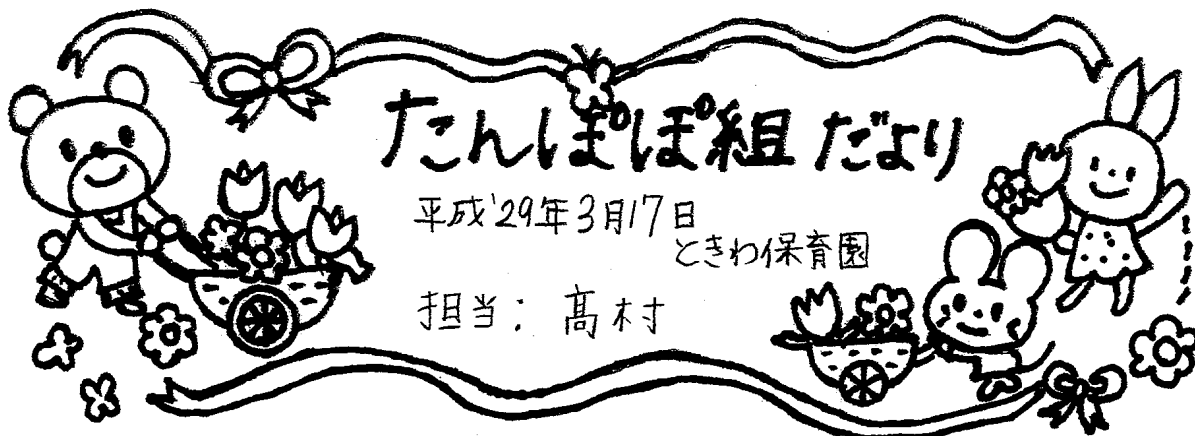 たんぽぽ組 だより
平成'29年3月17日
ときわ保育園
担当：髙村